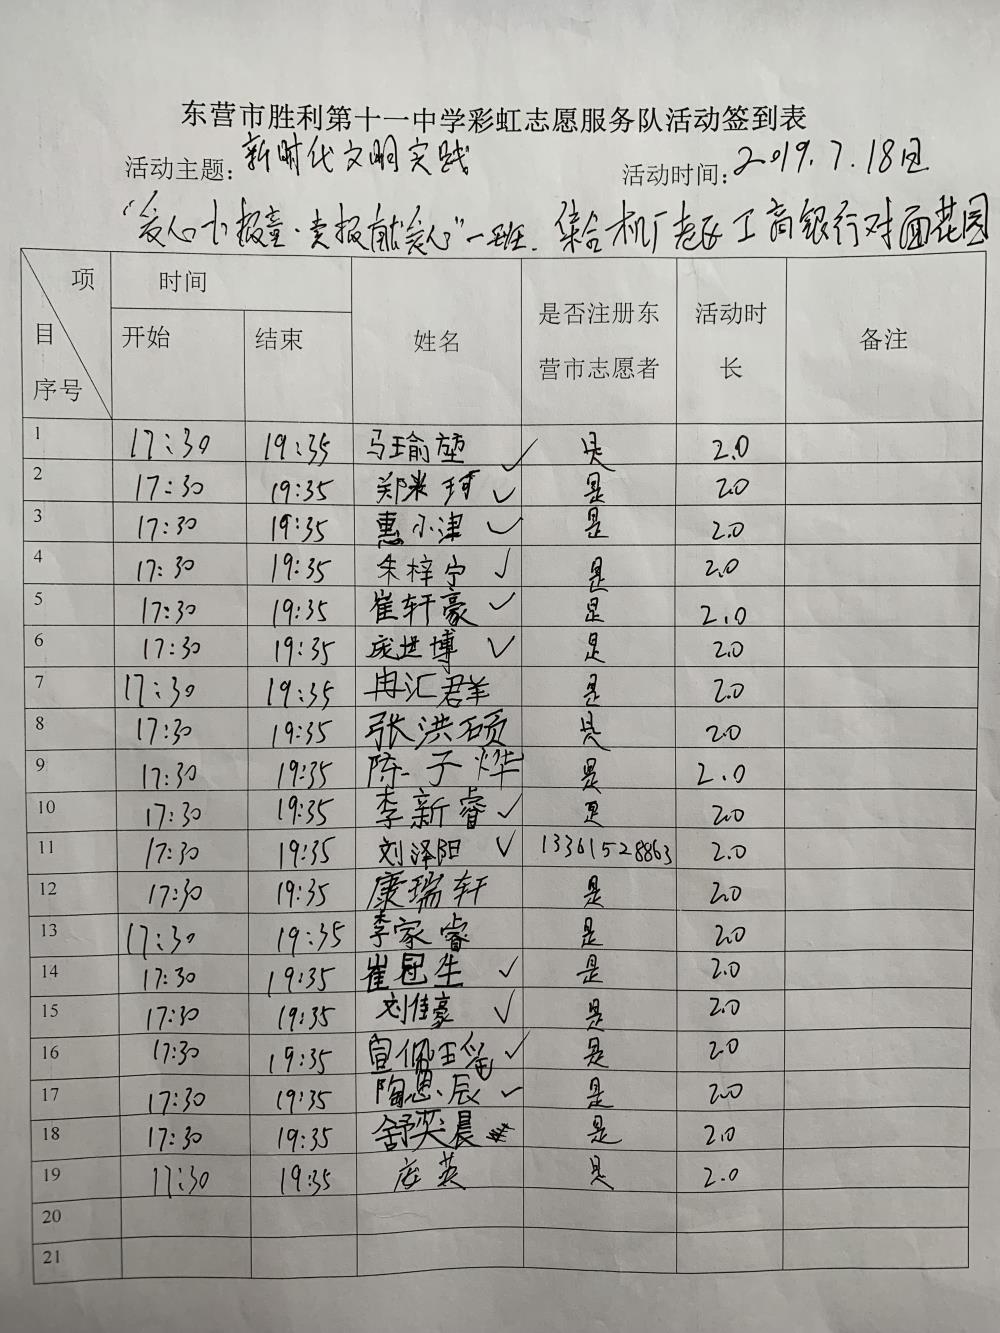 东营市胜利第十一中学彩虹志愿服务队活动签到表
活动主题: 新时代文明实践 活动时间: 2019.7.18日
“爱心小报童·卖报献爱心”一班. 集合机厂老区工商银行对面花园
项 目 序号 时间 开始 结束 姓名 是否注册东营市志愿者 活动时长 备注
1 17:30 19:35 马瑜堃 ✓ 是 2.0
2 17:30 19:35 郑 珂 ✓ 是 2.0
3 17:30 19:35 惠小津 ✓ 是 2.0
4 17:30 19:35 朱梓宁 ✓ 是 2.0
5 17:30 19:35 崔轩豪 ✓ 是 2.0
6 17:30 19:35 世博 ✓ 是 2.0
7 17:30 19:35 冉汇君羊 是 2.0
8 17:30 19:35 张洪硕 是 2.0
9 17:30 19:35 陈子烨 是 2.0
10 17:30 19:35 李新睿 ✓ 是 2.0
11 17:30 19:35 刘泽阳 ✓ 13361528863 2.0
12 17:30 19:35 康瑞轩 是 2.0
13 17:30 19:35 李家睿 是 2.0
14 17:30 19:35 崔冠生 ✓ 是 2.0
15 17:30 19:35 刘佳豪 ✓ 是 2.0
16 17:30 19:35 宣佩 ✓ 是 2.0
17 17:30 19:35 陶思辰 ✓ 是 2.0
18 17:30 19:35 舒奕晨 是 2.0
19 17:30 19:35 英 是 2.0
20
21